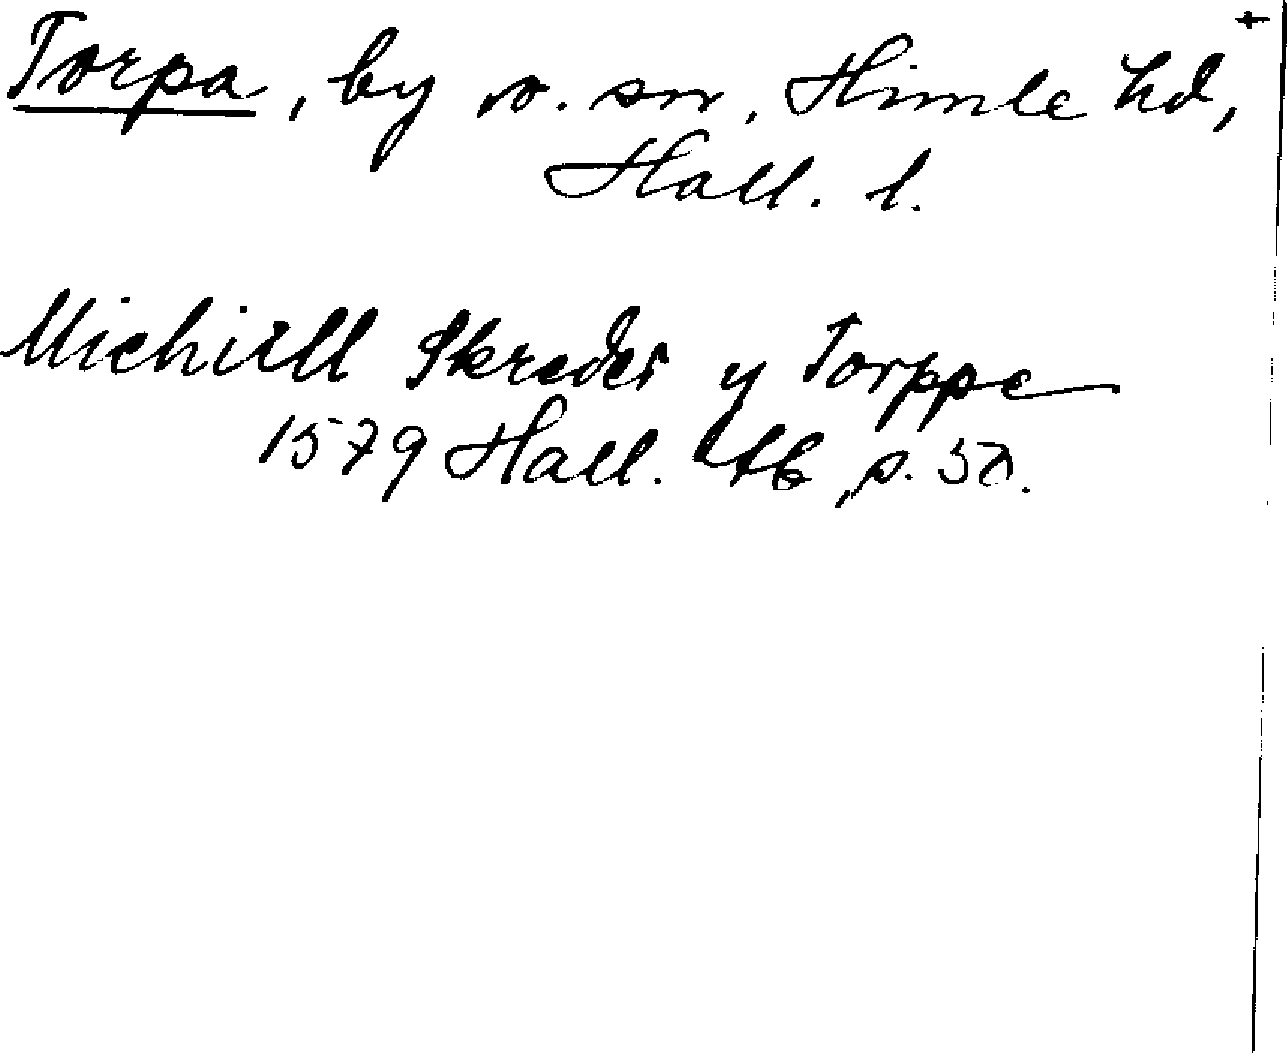 Torpa, by o. sn, Himle hd, +
Hall. l.
Michiell Skreder y Torppe
1579 Hall. tb, s. 50.